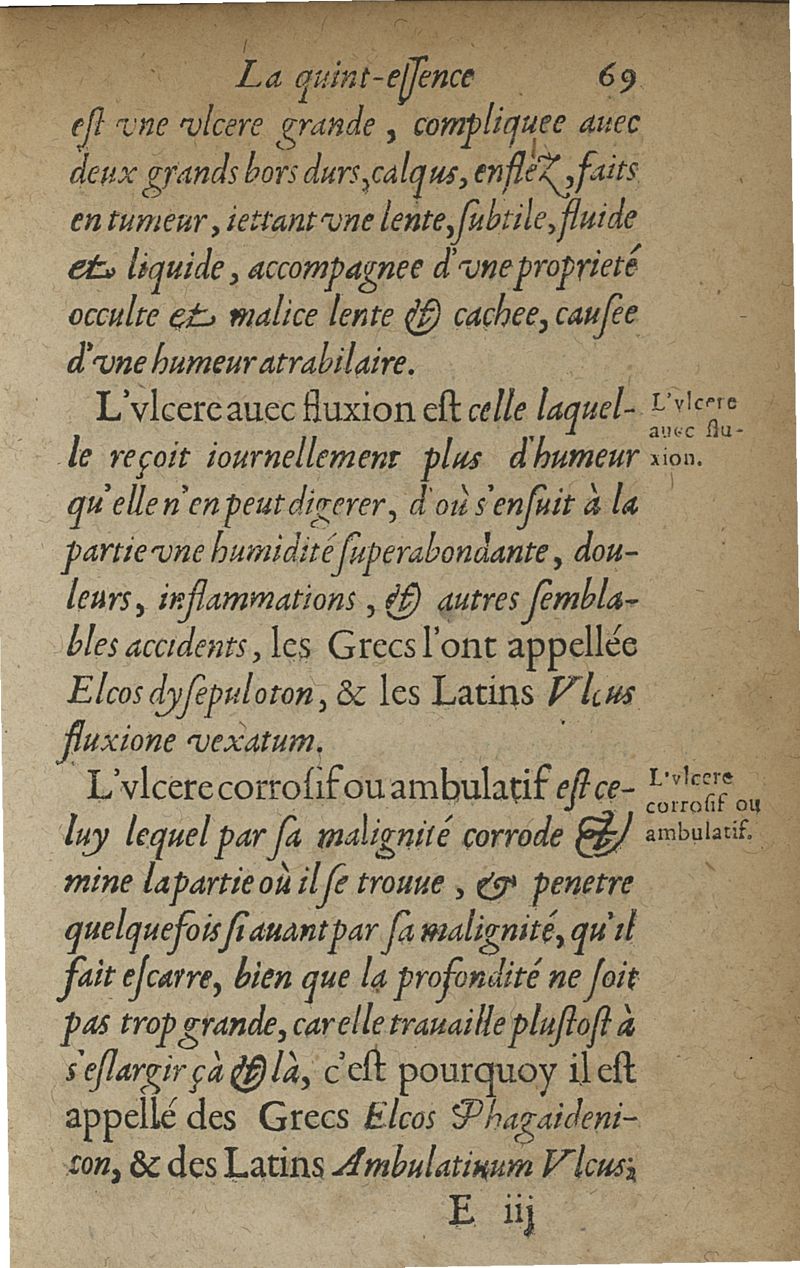 La quint-eſſence 69
eſt vne vlcere grande, compliquee auec
deux grands bors durs, calqus, enfleẕ, faits
en tumeur, iettant vne lente, ſubtile, fluide
et liquide, accompagnee d'vne proprieté
occulte et malice lente & cachee, cauſee
d'vne humeur atrabilaire.
L'vlcere auec fluxion eſt celle laquel-
le reçoit iournellement plus d'humeur
qu'elle n'en peut digerer, d'où s'enſuit à la
partie vne humidité ſuperabondante, dou-
leurs, inflammations, & autres ſembla-
bles accidents, les Grecs l'ont appellée
Elcos dyſepuloton, & les Latins Vlcus
fluxione vexatum.
L'vlcere auec flu-
xion.
L'vlcere corroſif ou ambulatif eſt ce-
luy lequel par ſa malignité corrode &
mine la partie où il ſe trouue, & penetre
quelquefois ſi auant par ſa malignité, qu'il
fait eſcarre, bien que la profondité ne ſoit
pas trop grande, car elle trauaille pluſtoſt à
s'eſlargir çà & là, c'eſt pourquoy il eſt
appellé des Grecs Elcos Phagaideni-
con, & des Latins Ambulatiuum Vlcus;
L'vlcere
corroſif ou
ambulatif.
E iij